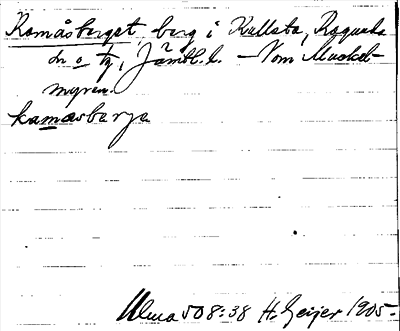 Kamåsberget, berg i Kallsta, Ragunda
sn o tg, Jämtl. l. – Vom Muckel-
myren.
kamasbarja
Ulma 508:38 H. Geijer 1905.